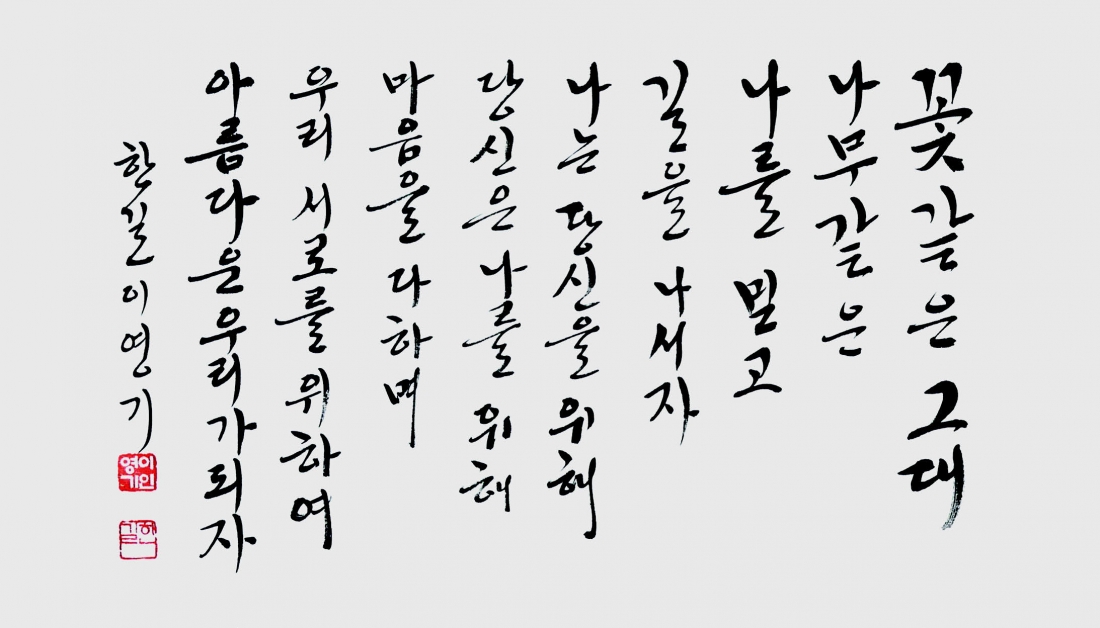 꽃같은 그대
나무같은
나를 믿고
길을 나서자
나는 당신을 위해
당신은 나를 위해
마음을 다하며
우리 서로를 위하여
아름다운 우리가 되자
한길 이영기
이영기인
한길